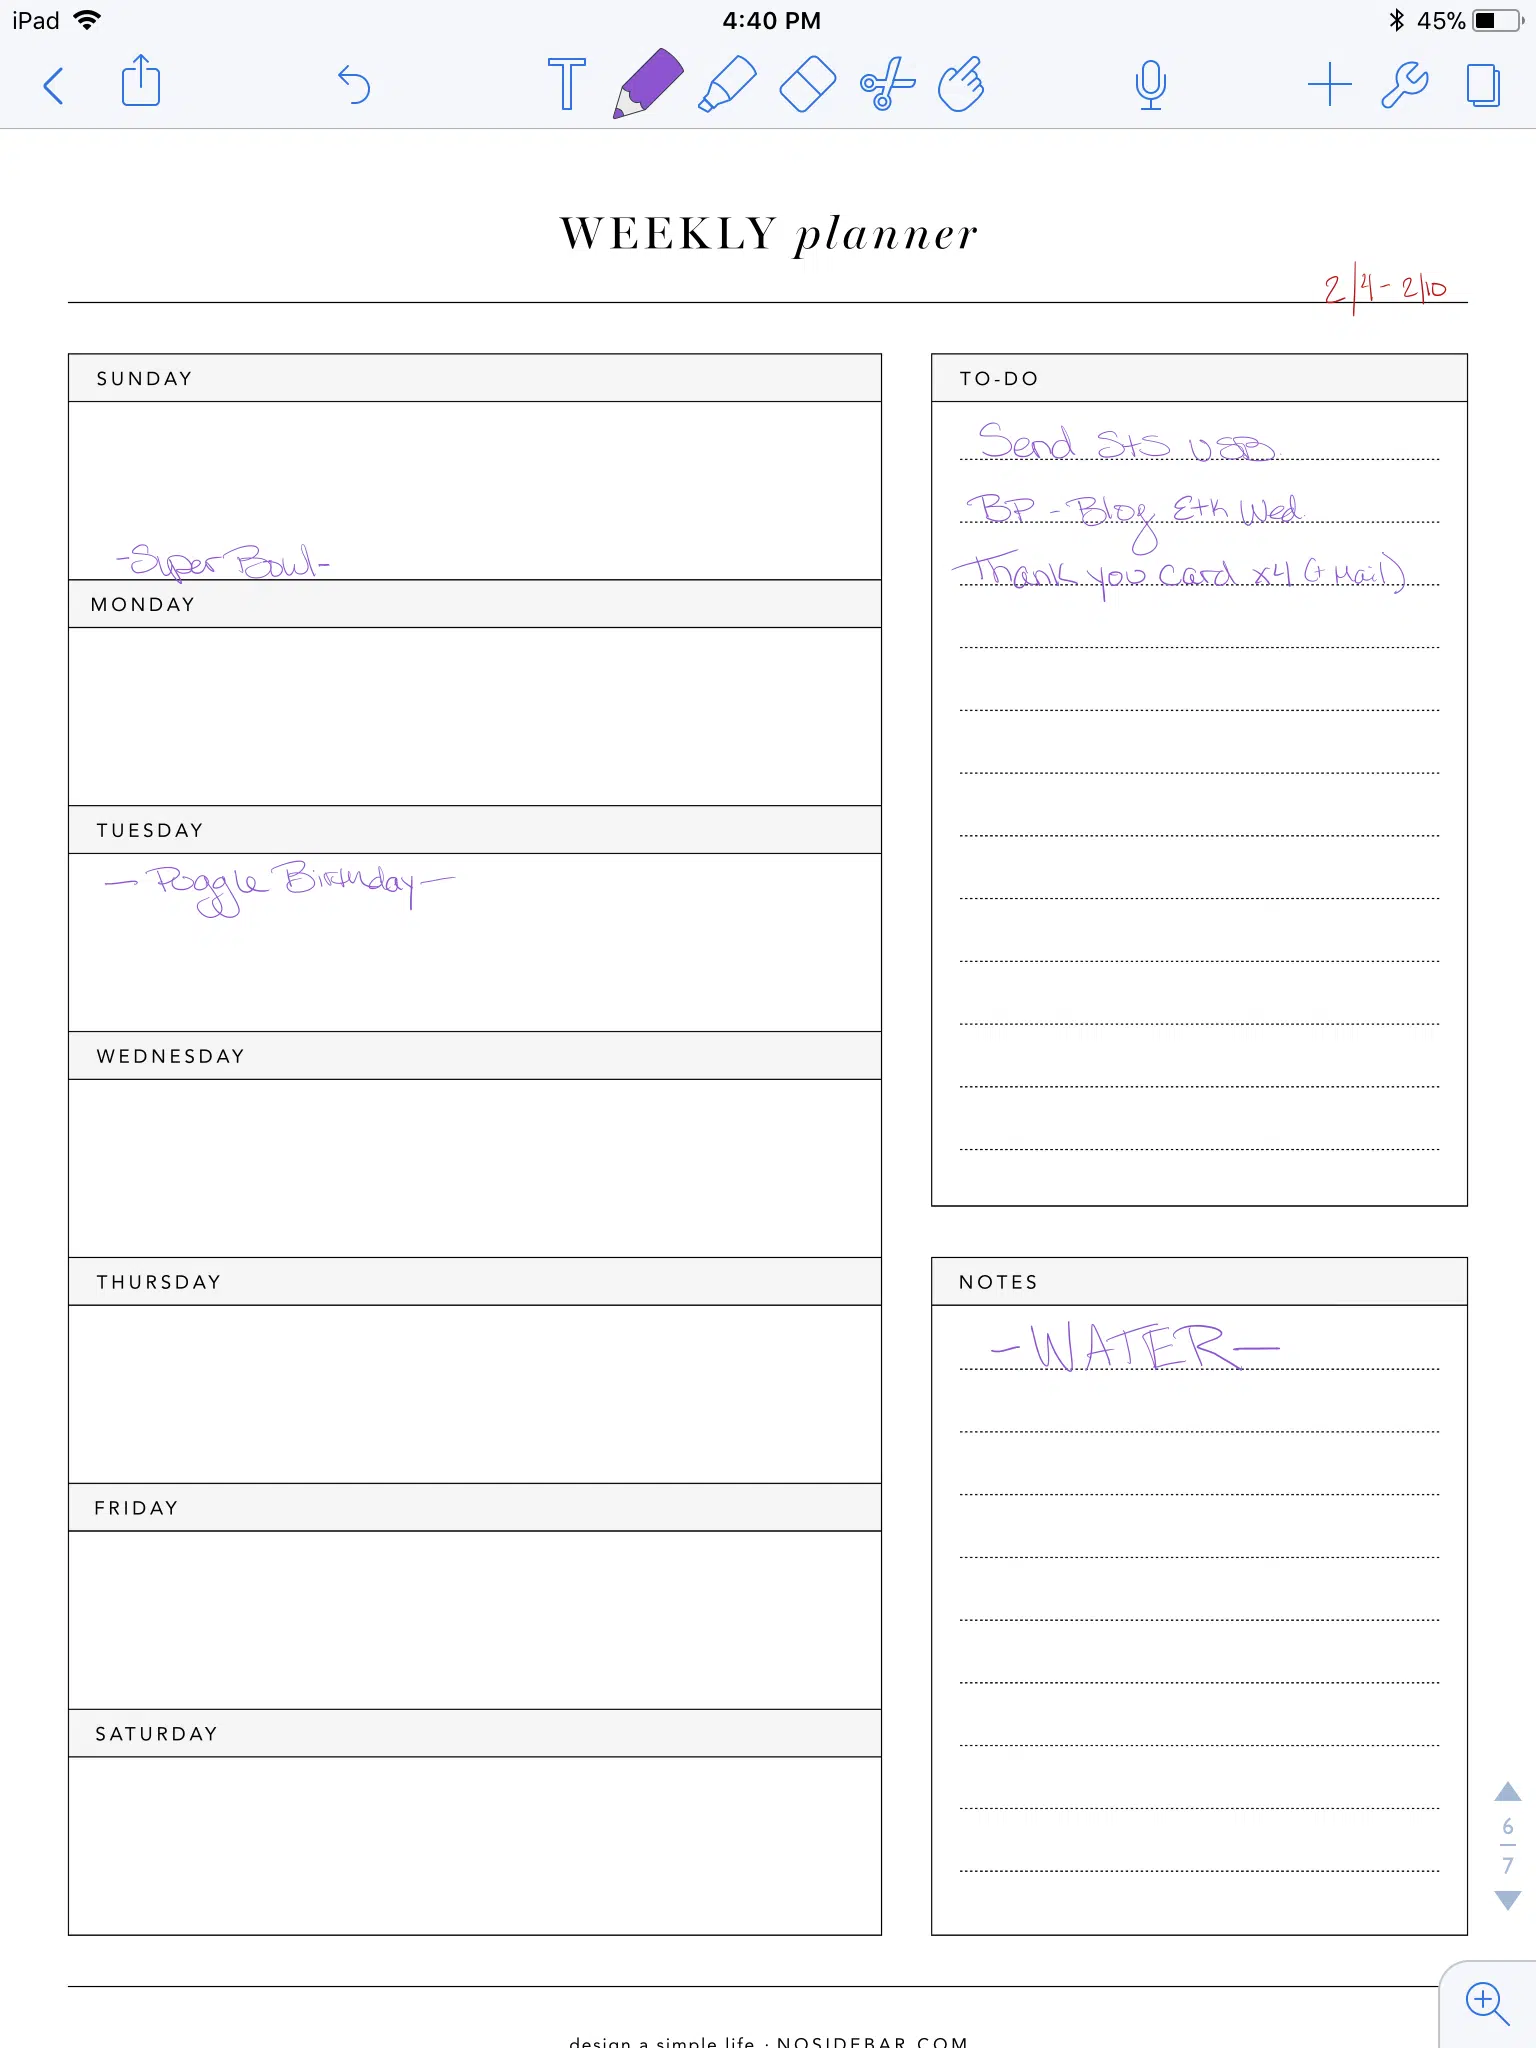 iPad
4:40 PM
45%
WEEKLY planner
2/4 - 2/10
SUNDAY
-Super Bowl-
MONDAY
TUESDAY
- Poggle Birthday -
WEDNESDAY
THURSDAY
FRIDAY
SATURDAY
TO-DO
Send StS USB
BP - Blog Eth Wed.
Thank you card x4 (+ Mail)
NOTES
- WATER -
6
7
design a simple life · NOSIDEBAR.COM